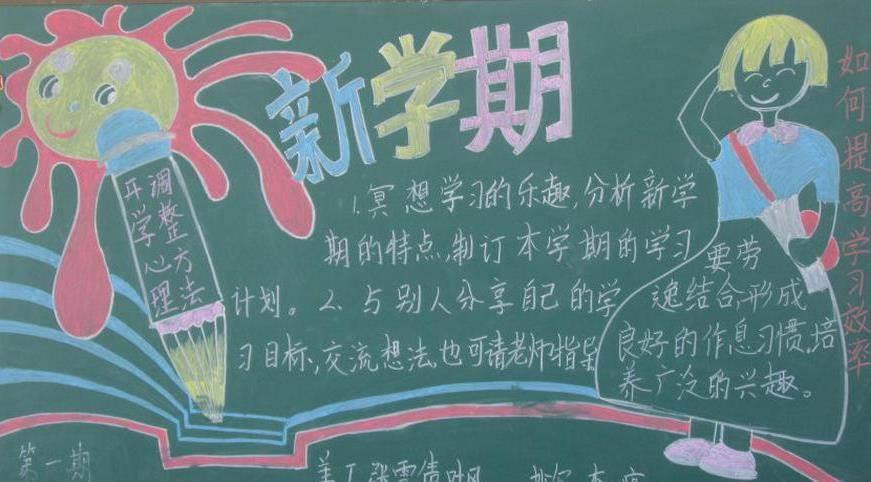 新学期
开学心理
调整方法
1.冥想学习的乐趣,分析新学
期的特点,制订本学期的学习
计划。2.与别人分享自己的学
习目标,交流想法,也可请老师指导
要劳
逸结合,形成
良好的作息习惯,培
养广泛的兴趣。
如何提高学习效率
第一期